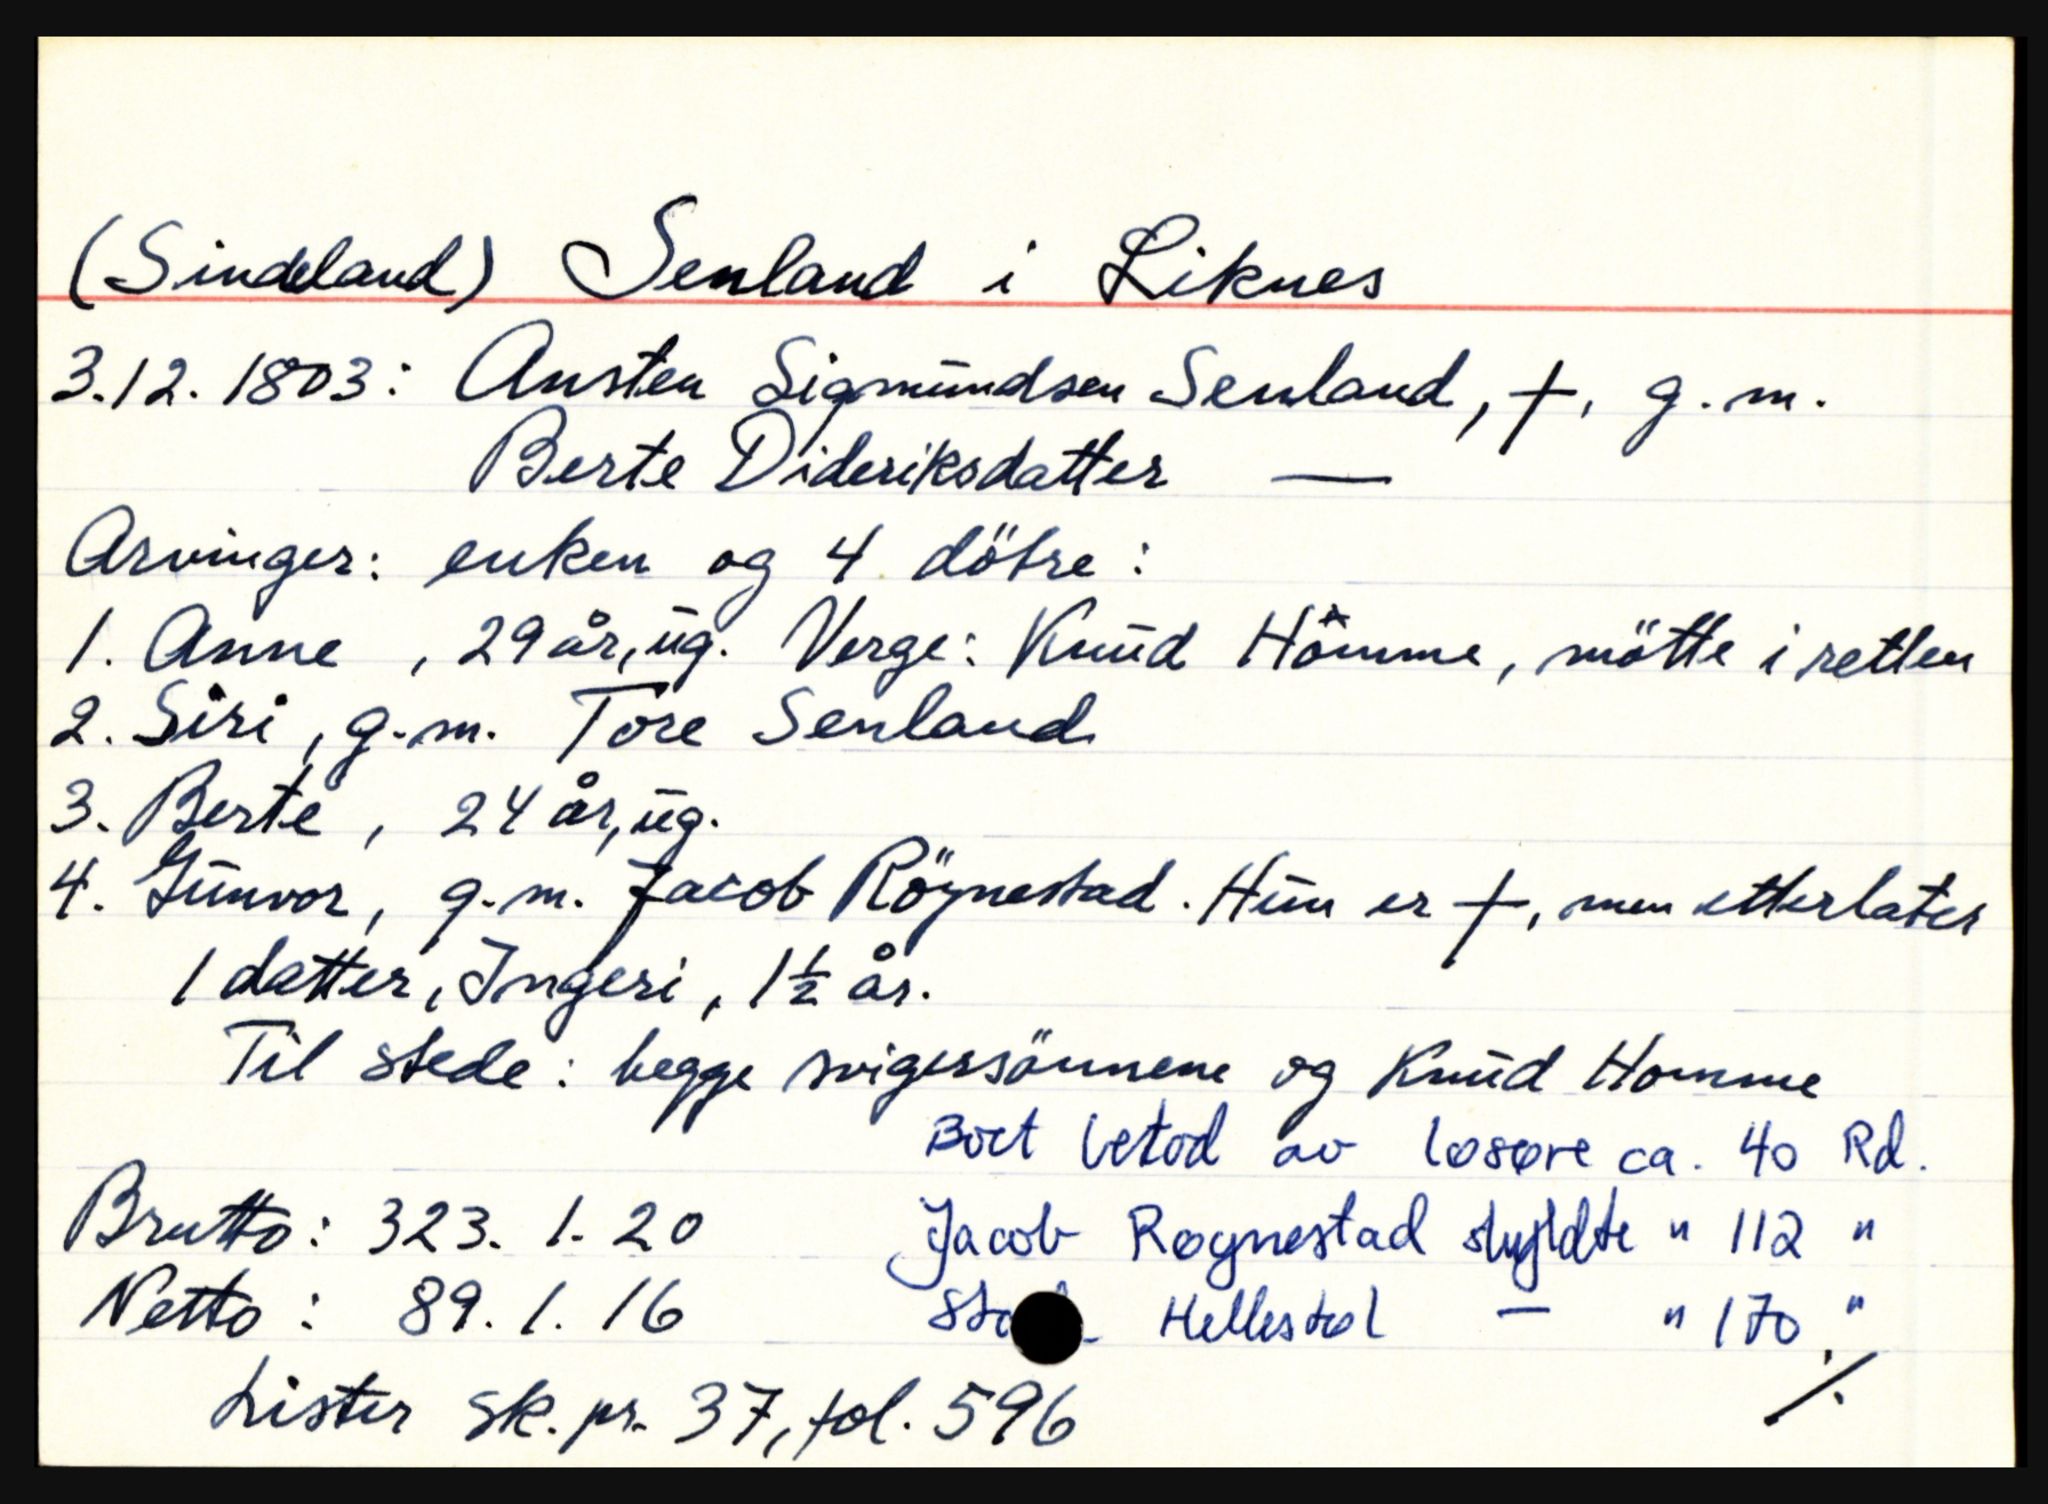 (Sindeland) Senland i Liknes
3.12.1803: Ansten Sigmundsen Senland, †, g.m.
Berte Dideriksdatter —
Arvinger: enken og 4 dötre:
1. Anne, 29 år, ug. Verge: Knud Hömme, mötte i retten
2. Siri, g.m. Tore Senland
3. Berte, 24 år, ug.
4. Gunvor, g.m. Jacob Röynestad. Hun er †, men etterlater
1 datter, Ingeri, 1½ år.
Til stede: begge svigersönnene og Knud Homme
Boet betod av løsøre ca. 40 Rd.
Brutto: 323. 1. 20 Jacob Røynestad skyldte " 112 "
Netto: 89. 1. 16 Hellestøl — " 170 "
Lister sk.pr. 37, fol. 596 ./.